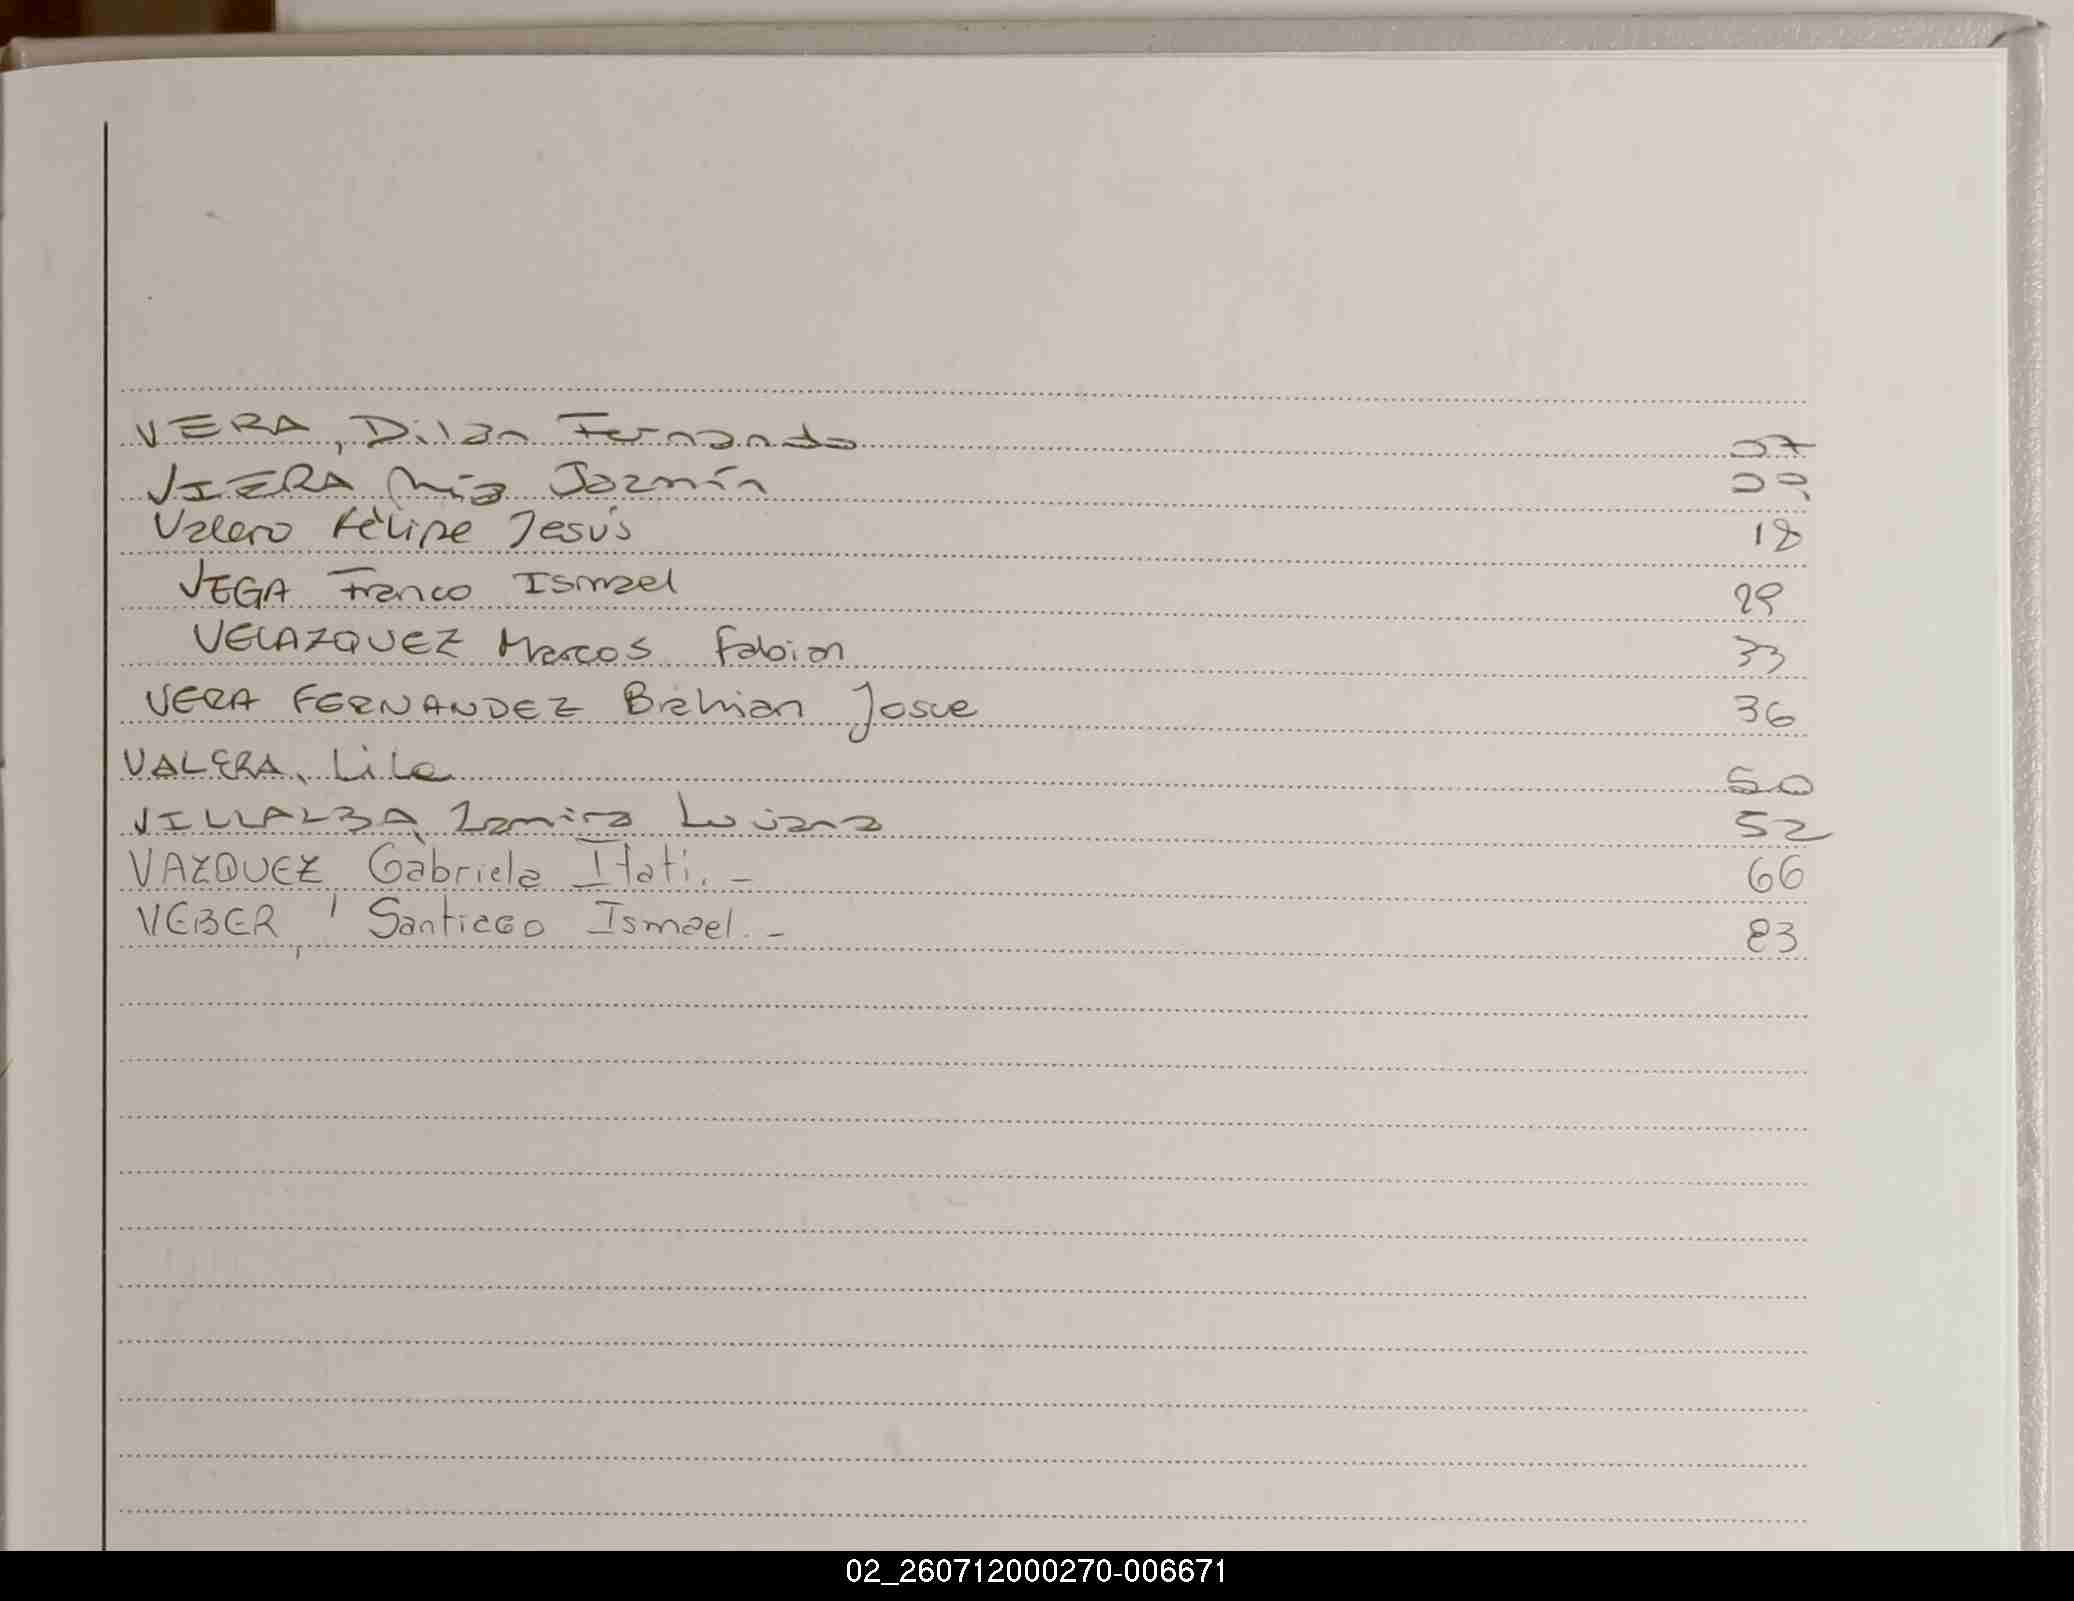 VERA, Dilan Fernando 07
VIERA, Mia Jazmín 09
Valero Felipe Jesús 18
VEGA Franco Ismael 29
VELAZQUEZ Marcos Fabian 33
VERA FERNANDEZ Brahian Josue 36
VALERA, Lila 50
VILLALBA, Zamira Luisana 52
VAZQUEZ, Gabriela Itati. - 66
VEBER, Santiago Ismael. - 83
02_260712000270-006671